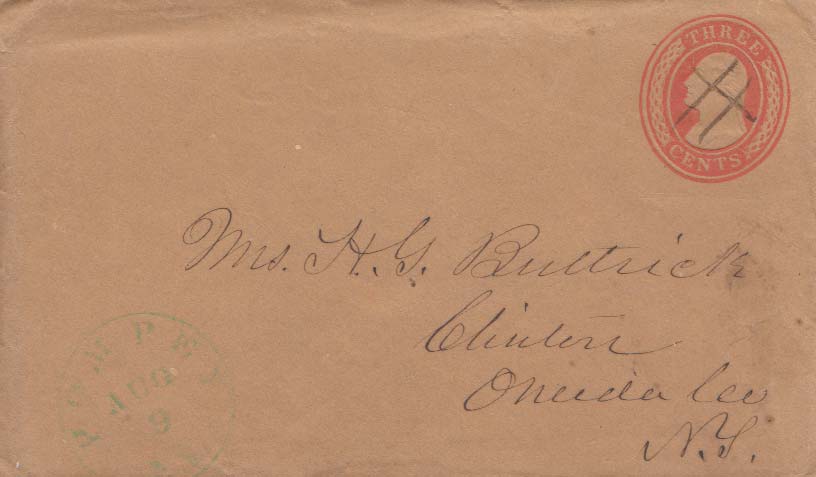 THREE
CENTS
Mrs. H. G. Buttrick
Clinton
Oneida Co
N.Y.
POMPEY
AUG
9